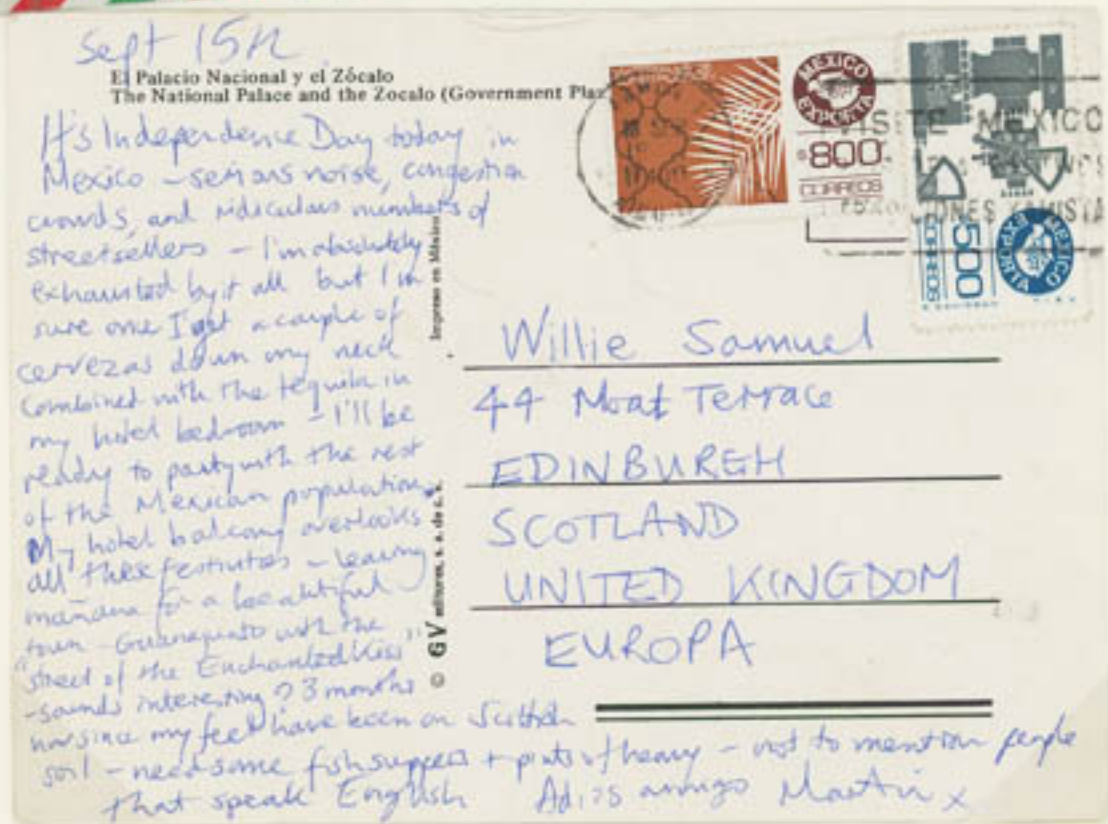 Sept 15th
El Palacio Nacional y el Zócalo
The National Palace and the Zocalo (Government Plaz
It's Independence Day today in
Mexico - serious noise, congestion
crowds, and ridiculous numbers of
streetsellers - I'm absolutely
exhausted by it all but I'm
sure once I get a couple of
cervezas down my neck
combined with the tequila in
my hotel bedroom - I'll be
ready to party with the rest
of the Mexican population.
My hotel balcony overlooks
all these festivities - leaving
mañana for a beautiful
town - Guanajuato with the
"street of the Enchanted Kiss"
- sounds interesting? 3 months
now since my feet have been on Scottish
soil - need some fish suppers + pints of heavy - not to mention people
that speak English Adios amigo Martin x
Impreso en México
© GV editores, s. a. de c. v.
MEXICO
EXPORTA
$800
CORREOS
VISITE MEXICO
MEXICO
EXPORTA
500
CORREOS
Willie Samuel
44 Moat Terrace
EDINBURGH
SCOTLAND
UNITED KINGDOM
EUROPA